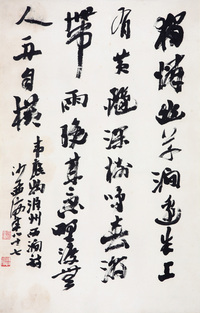 獨憐幽草澗邊生上
有黄鸝深樹鳴春潮
帶雨晚來急野渡無
人舟自橫
韋應物滁州西澗詩
沙孟海年八十七